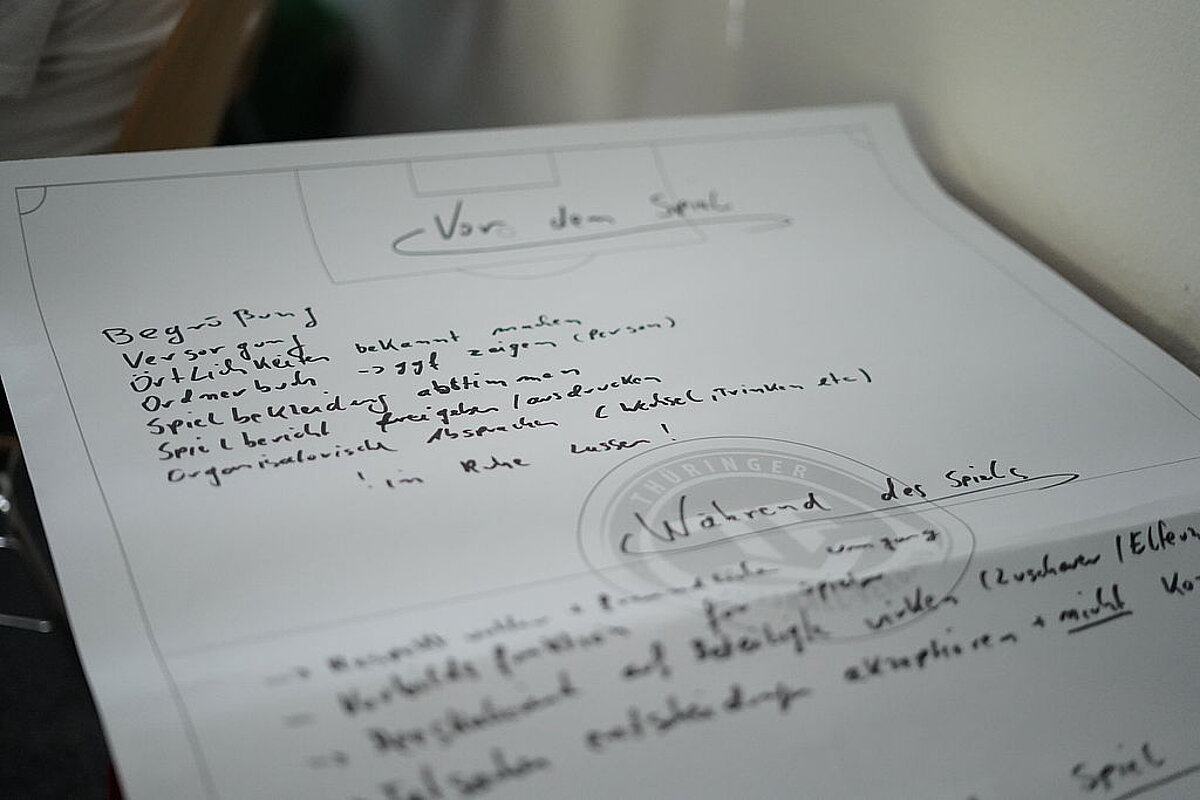 Vor dem Spiel
Begrüßung
Versorgung
Örtlichkeiten bekannt machen
Ordnerbuch -> ggf zeigen (Person)
Spielbekleidung abstimmen
Spielbericht freigeben / ausdrucken
Organisatorische Absprachen (Wechsel, Trinken etc)
! in Ruhe lassen!
THÜRINGER
Während des Spiels
umgang
- Vorbildsfunktion für Spieler
auf Beteiligte wirken (Zuschauer / Eltern
entscheidungen akzeptieren + nicht
Spiel